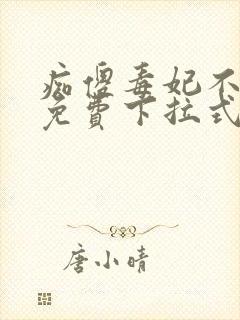 痴傻毒妃不
免費下拉式
唐小晴